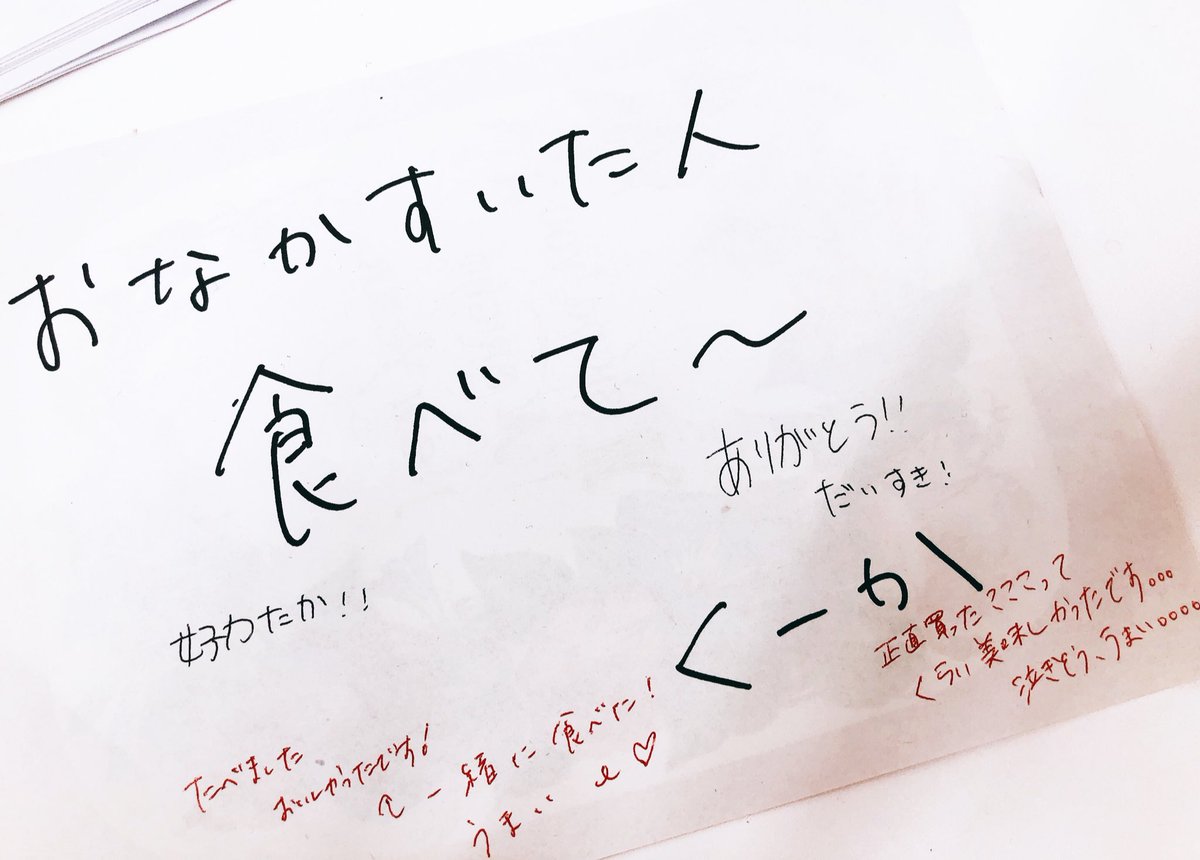 おなかすいた人
食べて〜
ありがとう!!
だいすき!
くーか
好わたか!!
正直買ったこここって
くらい美味しかったです...
泣きそう、うまい....
たべました
おいしかったです!
一緒に食べた!
うまいぃ♡